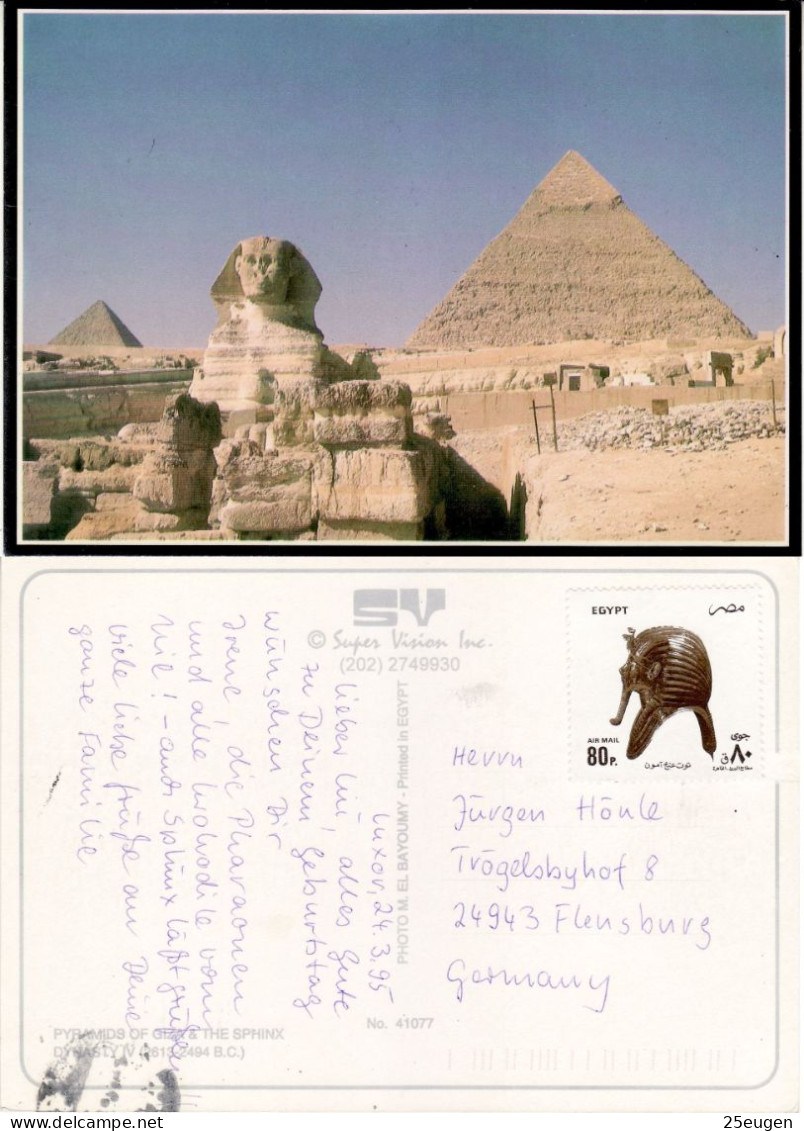 SV
© Super Vision Inc.
(202) 2749930
EGYPT
مصر
AIR MAIL
80 P.
جوى
٨٠ ق
توت عنخ آمون
Luxor, 24.3.95
lieber
alles Gute
zu Deinem Geburtstag
wünschen Dir
Irene, die Pharaonen
und alle Krokodile vom
Nil! - auch Sphinx läßt grüßen!!
viele liebe Grüße an Deine
ganze Familie
PHOTO M. EL BAYOUMY - Printed in EGYPT
Herrn
Jürgen Hönle
Trögelsbyhof 8
24943 Flensburg
Germany
No. 41077
PYRAMIDS OF GIZA & THE SPHINX
DYNASTY IV (2613-2494 B.C.)
25eugen